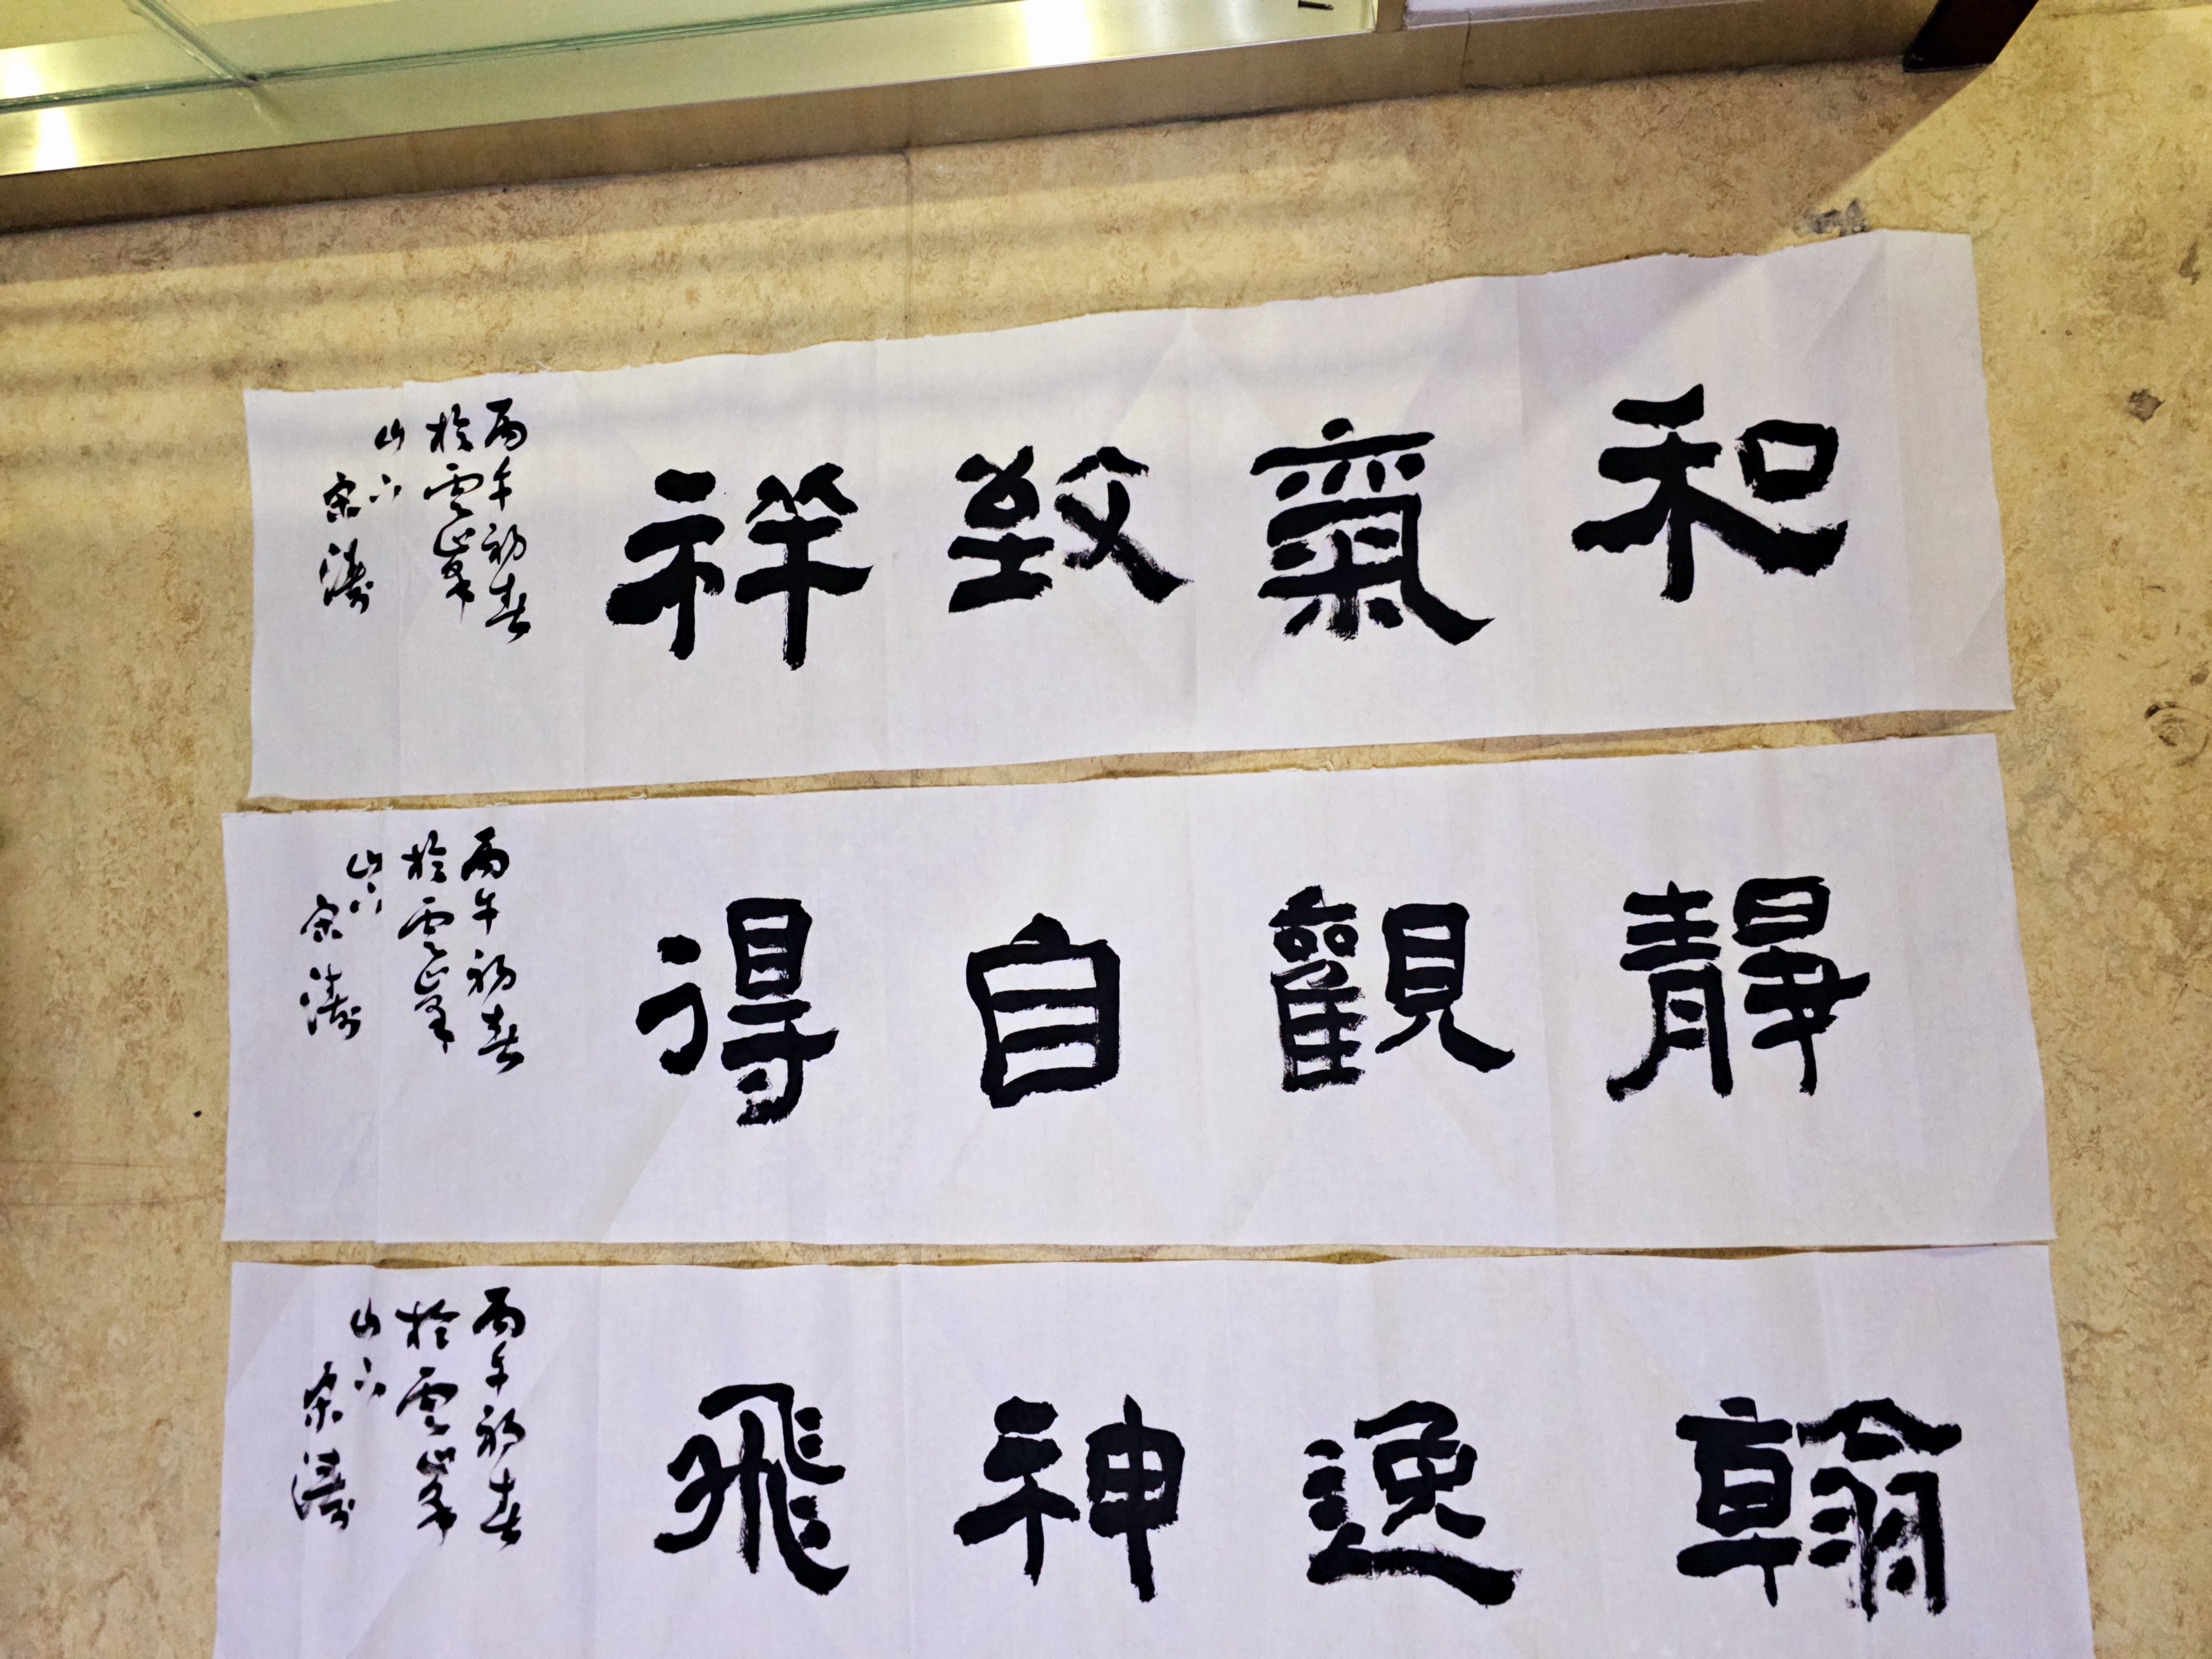 和氣致祥
丙午初春
於雲峰
山下
宋濤
靜觀自得
丙午初春
於雲峰
山下
宋濤
翰逸神飛
丙午初春
於雲峰
山下
宋濤